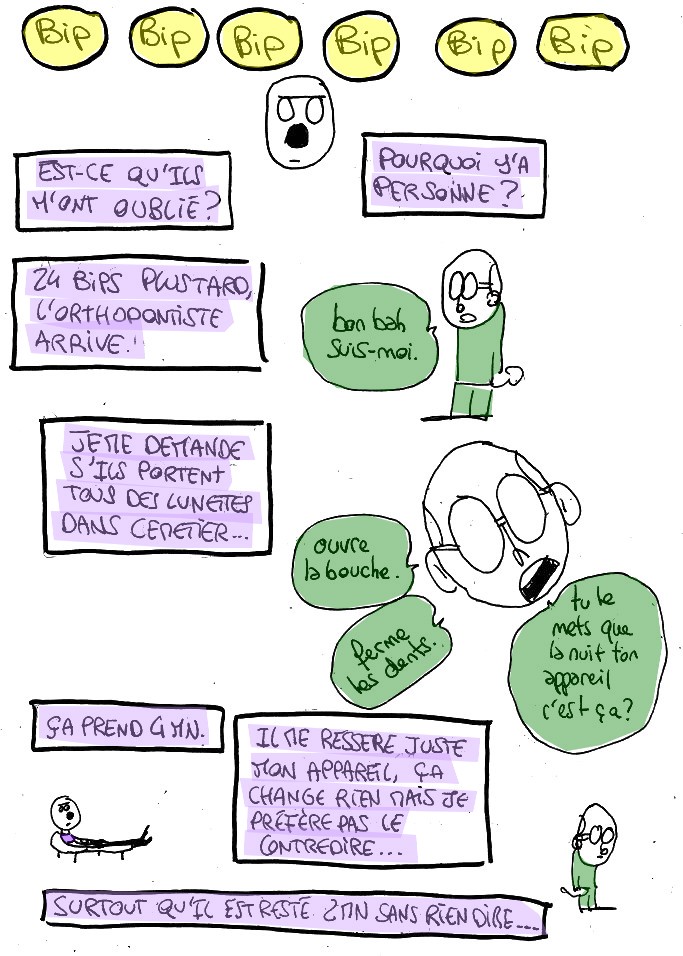 Bip
Bip
Bip
Bip
Bip
Bip
EST-CE QU'ILS
M'ONT OUBLIÉ?
POURQUOI Y'A
PERSONNE?
24 BIPS PLUSTARD,
L'ORTHODONTISTE
ARRIVE.
bon bah
suis-moi.
JE ME DEMANDE
S'ILS PORTENT
TOUS DES LUNETTES
DANS CE METIER...
ouvre
la bouche.
ferme
les dents.
tu le
mets que
la nuit ton
appareil
c'est ça?
ÇA PREND 4 MN.
IL ME RESSERE JUSTE
MON APPAREIL, ÇA
CHANGE RIEN MAIS JE
PRÉFÈRE PAS LE
CONTREDIRE...
SURTOUT QU'IL EST RESTÉ 2MN SANS RIEN DIRE....